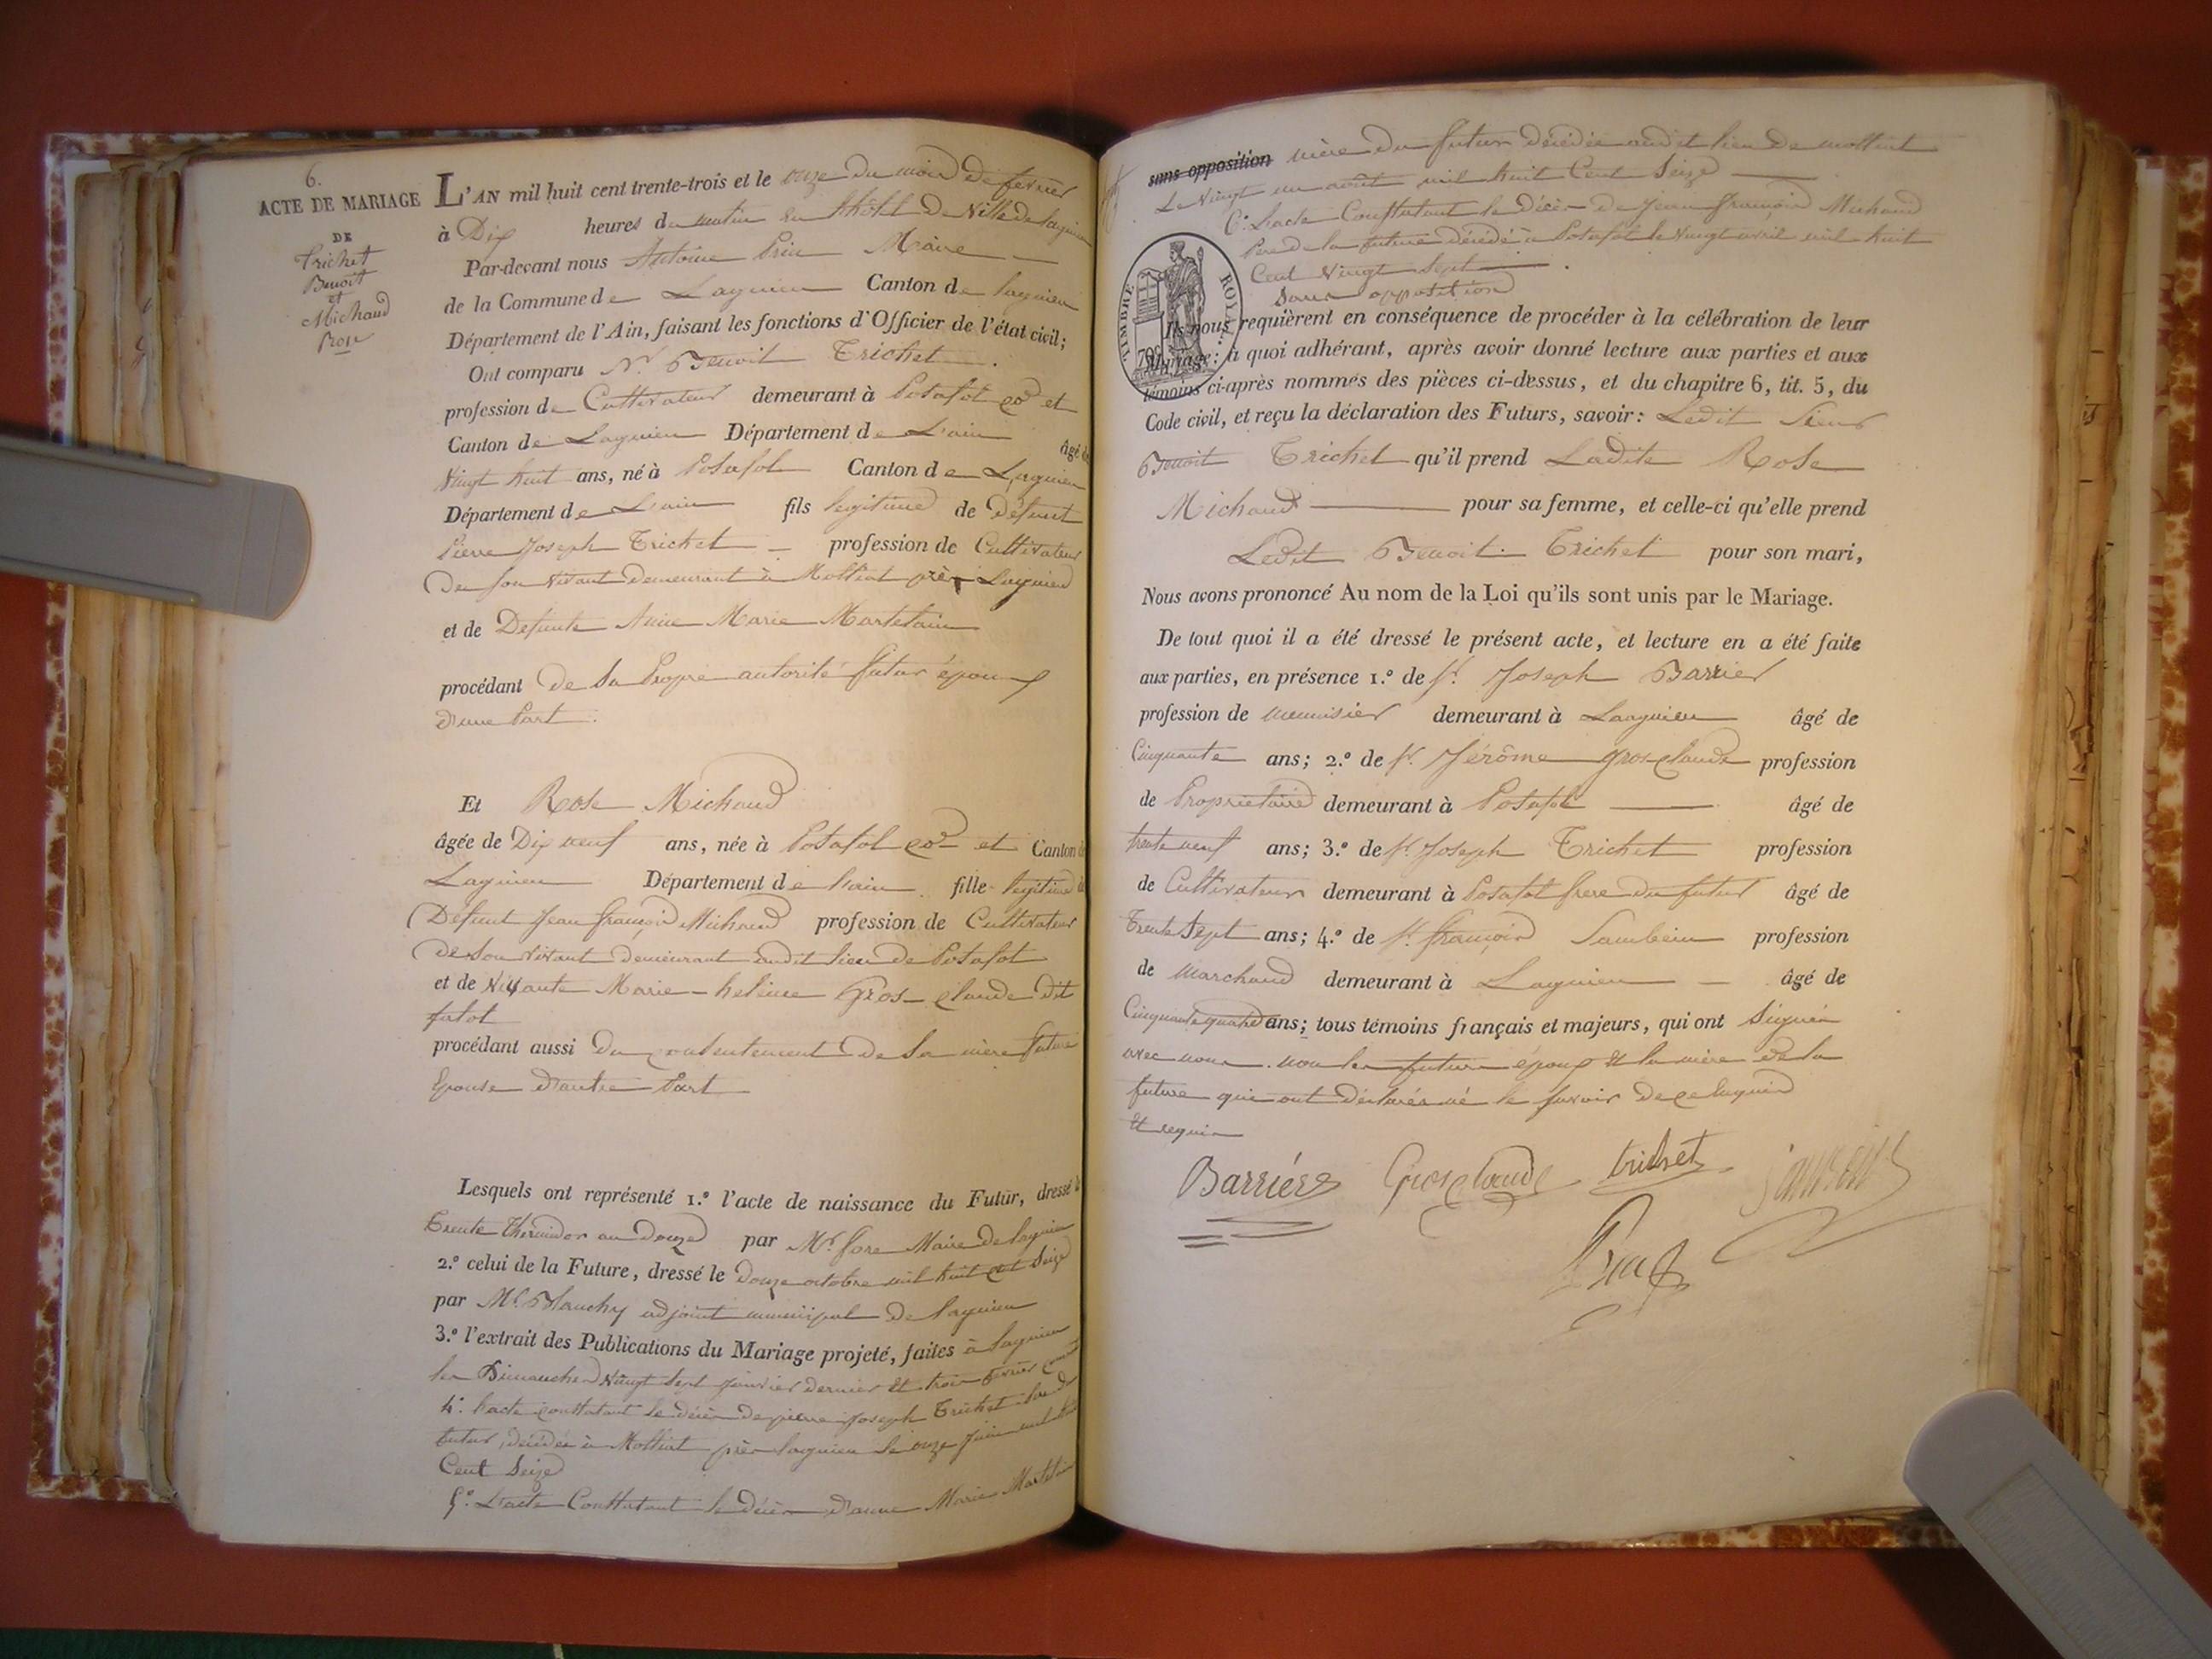 6.
ACTE DE MARIAGE
DE
Trichet
Benoit
et
Michaud
Rose
L'AN mil huit cent trente-trois et le onze du mois de fevrier
à Dix heures du matin en l'hôtel de Ville de lagnieu
Par-devant nous Antoine Maire
de la Commune de Lagnieu Canton de lagnieu
Département de l'Ain, faisant les fonctions d'Officier de l'état civil;
Ont comparu Sr. Benoit Trichet.
profession de Cultivateur demeurant à Posafol co.ne et
Canton de Lagnieu Département de L'ain âgé de
Vingt huit ans, né à Posafol Canton de Lagnieu
Département de L'ain fils legitime de défunt
Pierre Joseph Trichet profession de Cultivateur
De son vivant demeurant à Molliat près Lagnieu
et de Defunte Anne Marie Martelain
procédant de Sa Propre autorité futur époux
D'une Part.
Et Rose Michaud
âgée de Dix neuf ans, née à Posafol co.ne et Canton de
Lagnieu Département de L'ain fille legitime de
Défunt Jean françois Michaud profession de Cultivateur
De Son vivant demeurant audit lieu de Posafol
et de Vivante Marie-helène Gros-claude dit
futot
procédant aussi Du consentement de Sa mère future
Epouse D'autre Part
Lesquels ont représenté 1.º l'acte de naissance du Futur, dressé le
Trente Thermidor an Douze par Mr. fore Maire de lagnieu
2.º celui de la Future, dressé le Douze octobre mil huit cent Seize
par Mr. Blanchy adjoint municipal de lagnieu
3.º l'extrait des Publications du Mariage projeté, faites à lagnieu
les Dimanches Vingt Sept Janvier dernier et trois fevrier courant
4.º L'acte Constatant le décès de pierre Joseph Trichet Père du
futur, décédé à Molliat près lagnieu le onze Juin mil huit
Cent Seize
5.º L'acte Constatant le décès d'anne Marie Martelain
sans opposition mère du futur décédée audit lieu de molliat
Le Vingt un août mil huit Cent Seize
6.º L'acte Constatant le décès de Jean françois Michaud
Père de la future décédé à Posafol le Vingt avril mil huit
Cent Vingt Sept.
Sans opposition
TIMBRE ROYAL
Ils nous requièrent en conséquence de procéder à la célébration de leur
Mariage: à quoi adhérant, après avoir donné lecture aux parties et aux
témoins ci-après nommés des pièces ci-dessus, et du chapitre 6, tit. 5, du
Code civil, et reçu la déclaration des Futurs, savoir: Ledit Sieur
Benoit Trichet qu'il prend Ladite Rose
Michaud pour sa femme, et celle-ci qu'elle prend
Ledit Benoit Trichet pour son mari,
Nous avons prononcé Au nom de la Loi qu'ils sont unis par le Mariage.
De tout quoi il a été dressé le présent acte, et lecture en a été faite
aux parties, en présence 1.º de Sr. Joseph Barrier
profession de menuisier demeurant à Lagnieu âgé de
Cinquante ans; 2.º de Sr. Jérôme grosclaude profession
de Propriétaire demeurant à Posafol âgé de
trente neuf ans; 3.º de Sr. Joseph Trichet profession
de Cultivateur demeurant à Posafol frere du futur âgé de
Trente Sept ans; 4.º de Sr. françois profession
de Marchand demeurant à Lagnieu âgé de
Cinquante quatre ans; tous témoins français et majeurs, qui ont Signés
avec nous. non les futurs époux et la mère de la
future qui ont déclarés né le savoir de ce enquis
et requis
Barriére Grosclaude trichet